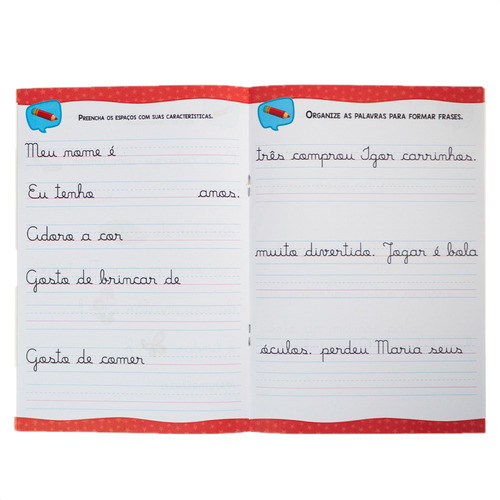 PREENCHA OS ESPAÇOS COM SUAS CARACTERÍSTICAS.
Meu nome é
Eu tenho anos.
Adoro a cor
Gosto de brincar de
Gosto de comer
ORGANIZE AS PALAVRAS PARA FORMAR FRASES.
três comprou Igor carrinhos.
muito divertido. Jogar é bola
óculos. perdeu Maria seus